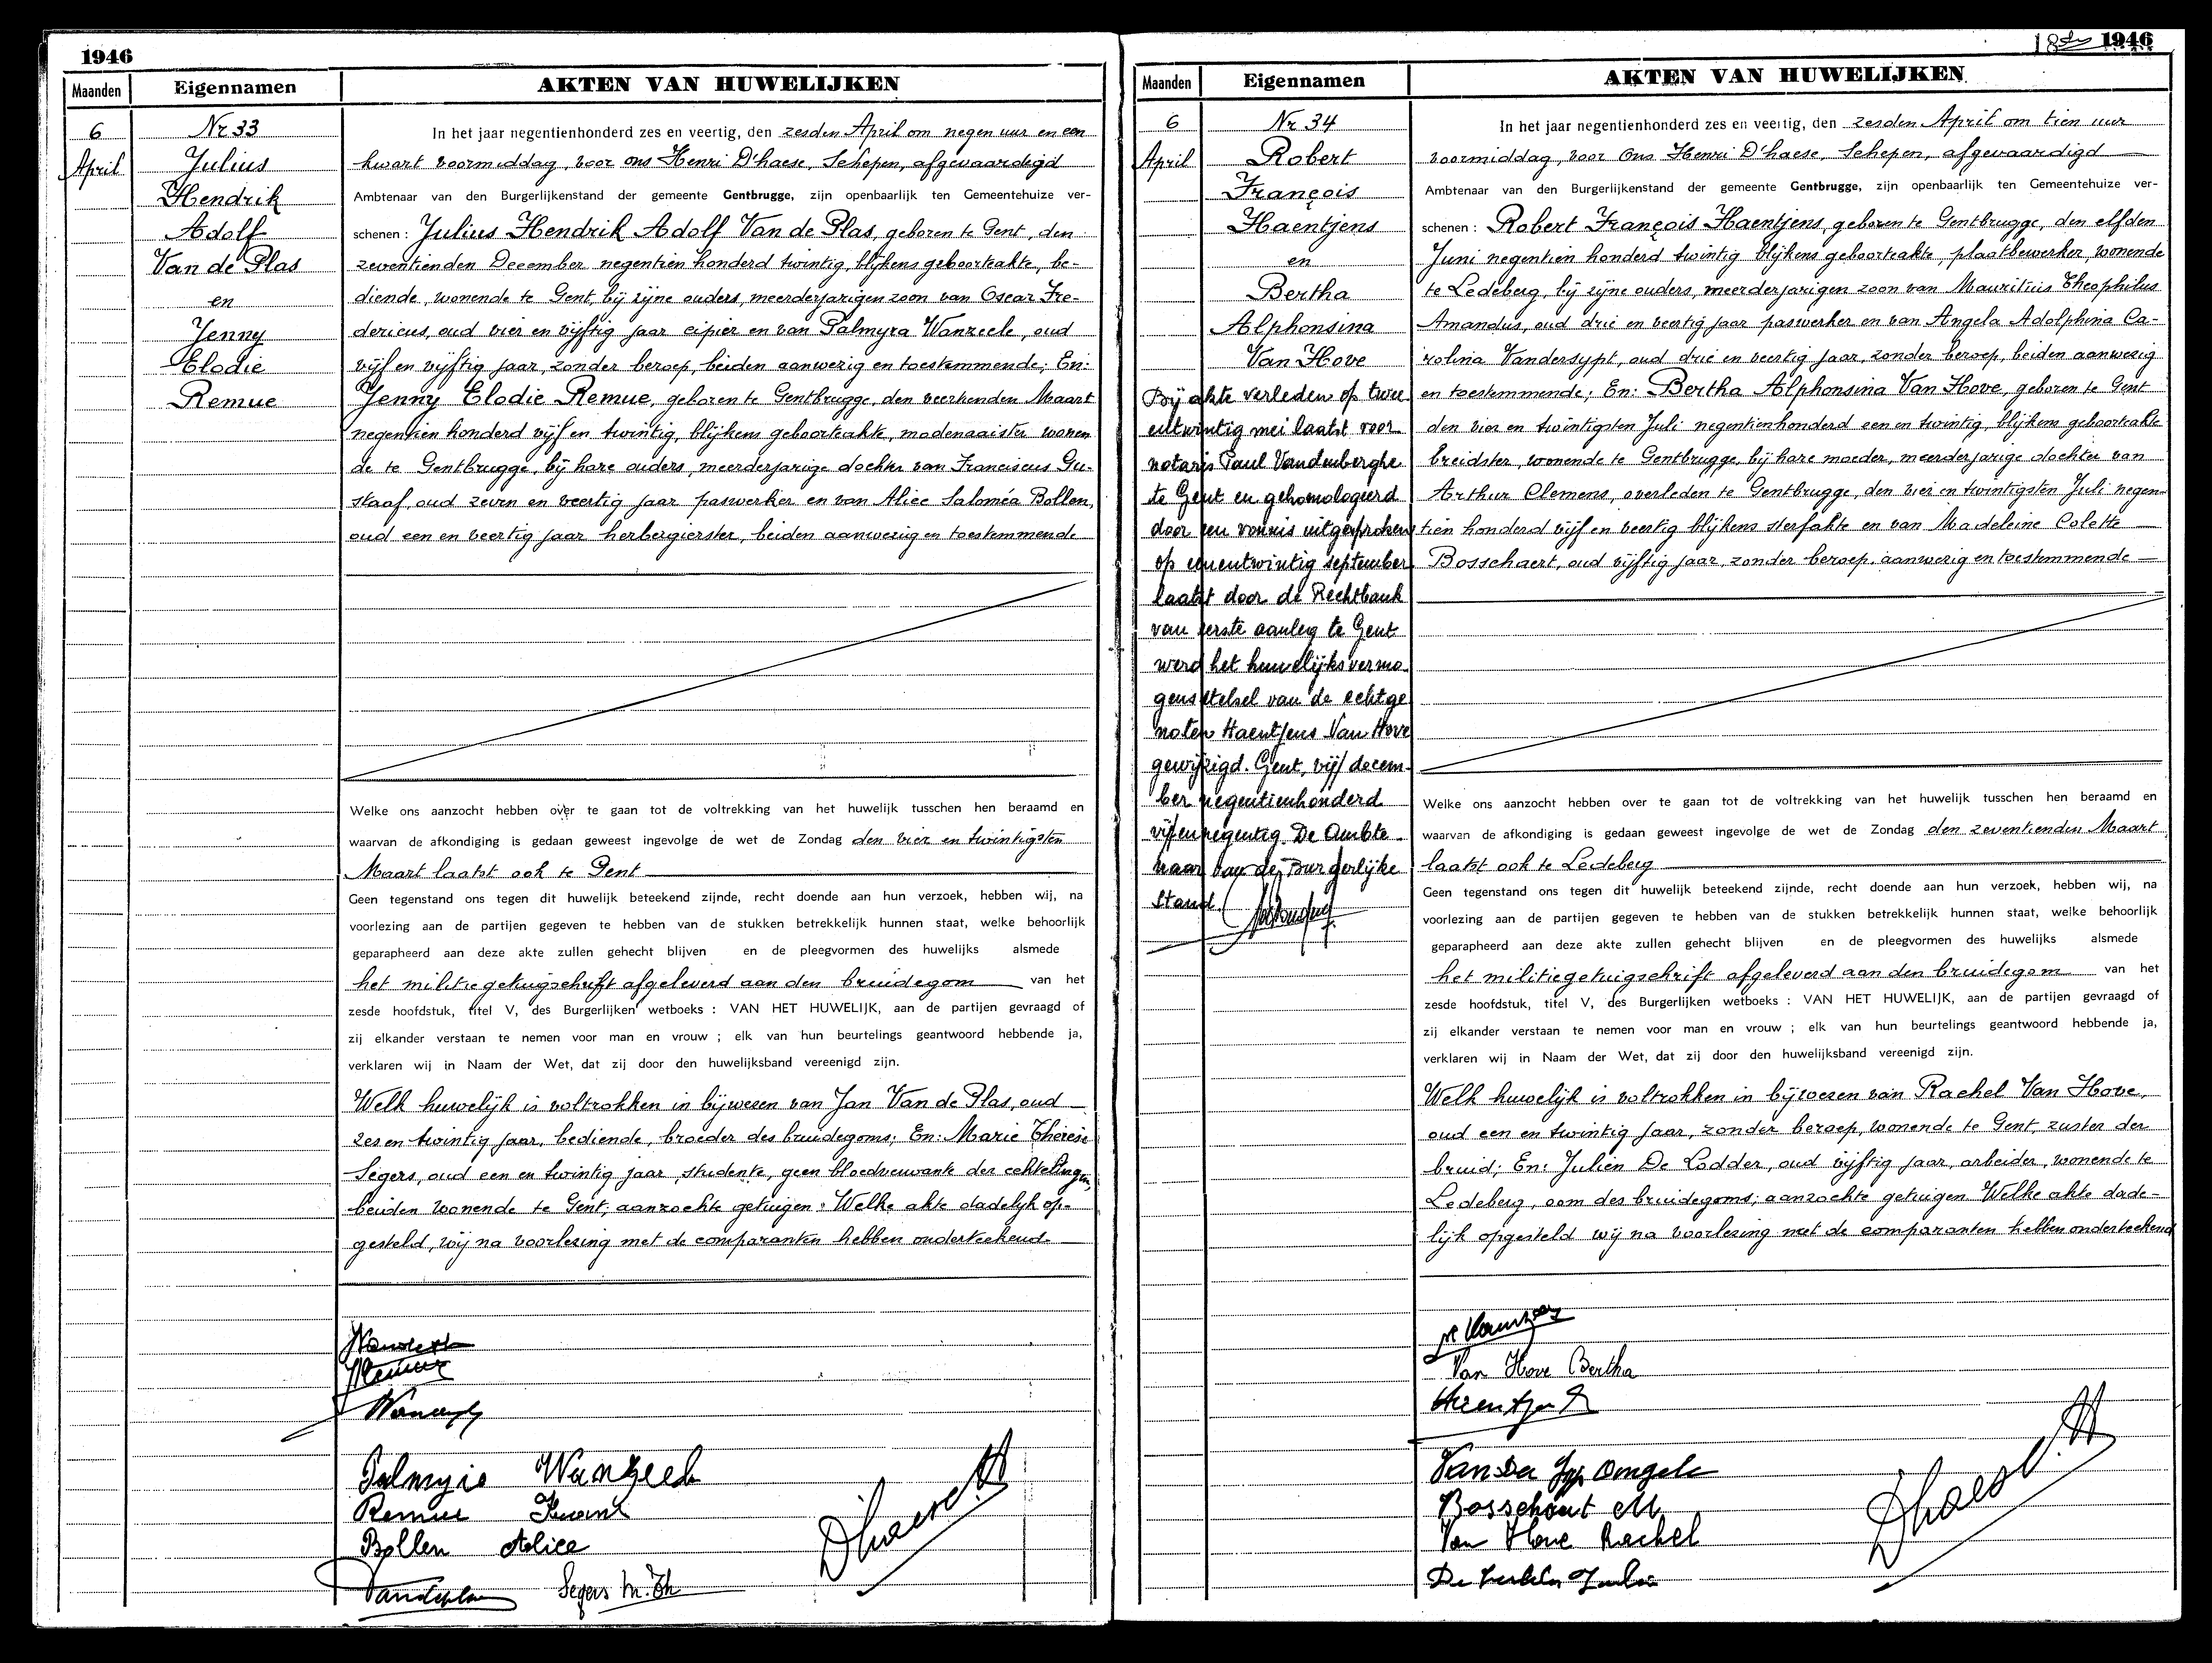 1946
Maanden
Eigennamen
AKTEN VAN HUWELIJKEN
6
April
Nr 33
Julius
Hendrik
Adolf
Van de Plas
en
Jenny
Elodie
Remue
In het jaar negentienhonderd zes en veertig, den zesden April om negen uur en een
kwart voormiddag, voor ons Henri D'haese, Schepen, afgevaardigd
Ambtenaar van den Burgerlijkenstand der gemeente Gentbrugge, zijn openbaarlijk ten Gemeentehuize ver-
schenen : Julius Hendrik Adolf Van de Plas, geboren te Gent, den
zeventienden December negentien honderd twintig, blijkens geboorteakte, be-
diende, wonende te Gent, bij zijne ouders, meerderjarigen zoon van Oscar Fre-
dericus, oud vier en vijftig jaar cipier en van Palmyra Wanzeele, oud
vijf en vijftig jaar, zonder beroep, beiden aanwezig en toestemmende; En:
Jenny Elodie Remue, geboren te Gentbrugge, den veertienden Maart
negentien honderd vijf en twintig, blijkens geboorteakte, modenaaister wonen
de te Gentbrugge, bij hare ouders, meerderjarige dochter van Franciscus Gu-
staaf, oud zeven en veertig jaar paswerker en van Alice Saloméa Bollen,
oud een en veertig jaar herbergierster, beiden aanwezig en toestemmende
Welke ons aanzocht hebben over te gaan tot de voltrekking van het huwelijk tusschen hen beraamd en
waarvan de afkondiging is gedaan geweest ingevolge de wet de Zondag den vier en twintigsten
Maart laatst ook te Gent
Geen tegenstand ons tegen dit huwelijk beteekend zijnde, recht doende aan hun verzoek, hebben wij, na
voorlezing aan de partijen gegeven te hebben van de stukken betrekkelijk hunnen staat, welke behoorlijk
geparapheerd aan deze akte zullen gehecht blijven en de pleegvormen des huwelijks alsmede
het militiegetuigschrift afgeleverd aan den bruidegom van het
zesde hoofdstuk, titel V, des Burgerlijken wetboeks : VAN HET HUWELIJK, aan de partijen gevraagd of
zij elkander verstaan te nemen voor man en vrouw ; elk van hun beurtelings geantwoord hebbende ja,
verklaren wij in Naam der Wet, dat zij door den huwelijksband vereenigd zijn.
Welk huwelijk is voltrokken in bijwesen van Jan Van de Plas, oud
zes en twintig jaar, bediende, broeder des bruidegoms; En: Marie Thérèse
Segers, oud een en twintig jaar, studente, geen bloedverwante der echtelingen,
beiden wonende te Gent; aanzochte getuigen. Welke akte dadelijk op-
gesteld, wij na voorlezing met de comparanten hebben onderteekend
Remue
Palmyre Wanzeele
Remue
Bollen Alice
Segers M. Th
Dhaese H
18de 1946
Maanden
Eigennamen
AKTEN VAN HUWELIJKEN
6
April
Nr 34
Robert
François
Haentjens
en
Bertha
Alphonsina
Van Hove
Bij akte verleden op twee
entwintig mei laatst voor
notaris Paul Vandenberghe
te Gent en gehomologeerd
door een vonnis uitgesproken
op eenentwintig september
laatst door de Rechtbank
van eerste aanleg te Gent
werd het huwelijksvermo
gensstelsel van de echtge
noten Haentjens Van Hove
gewijzigd. Gent, vijf decem-
ber negentienhonderd
vijfennegentig. De Ambte
naar van de Burgerlijke
Stand.
In het jaar negentienhonderd zes en veertig, den zesden April om tien uur
voormiddag, voor Ons Henri D'haese, Schepen, afgevaardigd
Ambtenaar van den Burgerlijkenstand der gemeente Gentbrugge, zijn openbaarlijk ten Gemeentehuize ver-
schenen : Robert François Haentjens, geboren te Gentbrugge, den elfden
Juni negentien honderd twintig blijkens geboorteakte, plaatbewerker, wonende
te Ledeberg, bij zijne ouders, meerderjarigen zoon van Mauritius Theophilus
Amandus, oud drie en veertig jaar paswerker en van Angela Adolphina Ca-
rolina Vandersypt, oud drie en veertig jaar, zonder beroep, beiden aanwezig
en toestemmende; En: Bertha Alphonsina Van Hove, geboren te Gent
den vier en twintigsten Juli negentienhonderd een en twintig, blijkens geboorteakte
breidster, wonende te Gentbrugge, bij hare moeder, meerderjarige dochter van
Arthur Clemens, overleden te Gentbrugge, den vier en twintigsten Juli negen-
tien honderd vijf en veertig blijkens sterfakte en van Madeleine Colette
Bosschaert, oud vijftig jaar, zonder beroep, aanwezig en toestemmende
Welke ons aanzocht hebben over te gaan tot de voltrekking van het huwelijk tusschen hen beraamd en
waarvan de afkondiging is gedaan geweest ingevolge de wet de Zondag den zeventienden Maart
laatst ook te Ledeberg
Geen tegenstand ons tegen dit huwelijk beteekend zijnde, recht doende aan hun verzoek, hebben wij, na
voorlezing aan de partijen gegeven te hebben van de stukken betrekkelijk hunnen staat, welke behoorlijk
geparapheerd aan deze akte zullen gehecht blijven en de pleegvormen des huwelijks alsmede
het militiegetuigschrift afgeleverd aan den bruidegom van het
zesde hoofdstuk, titel V, des Burgerlijken wetboeks : VAN HET HUWELIJK, aan de partijen gevraagd of
zij elkander verstaan te nemen voor man en vrouw ; elk van hun beurtelings geantwoord hebbende ja,
verklaren wij in Naam der Wet, dat zij door den huwelijksband vereenigd zijn.
Welk huwelijk is voltrokken in bijwesen van Rachel Van Hove,
oud een en twintig jaar, zonder beroep, wonende te Gent, zuster der
bruid; En: Julien De Lodder, oud vijftig jaar, arbeider, wonende te
Ledeberg, oom des bruidegoms; aanzochte getuigen Welke akte dade-
lijk opgesteld wij na voorlezing met de comparanten hebben onderteekend
Van Hove Bertha
Van Der Angela
Bosschaert M.
Van Hove Rachel
Dhaese H